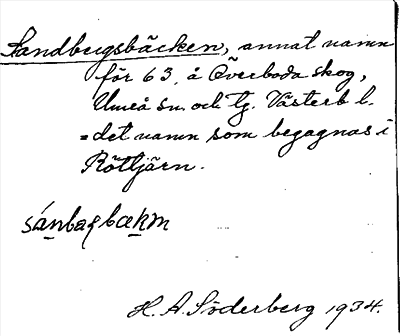 Sandbergsbäcken, annat namn
för 63, å Överboda skog,
Umeå sn. och tg. Västerb l.
= det namn som begagnas i
Röttjärn.
H. A. Söderberg 1934.